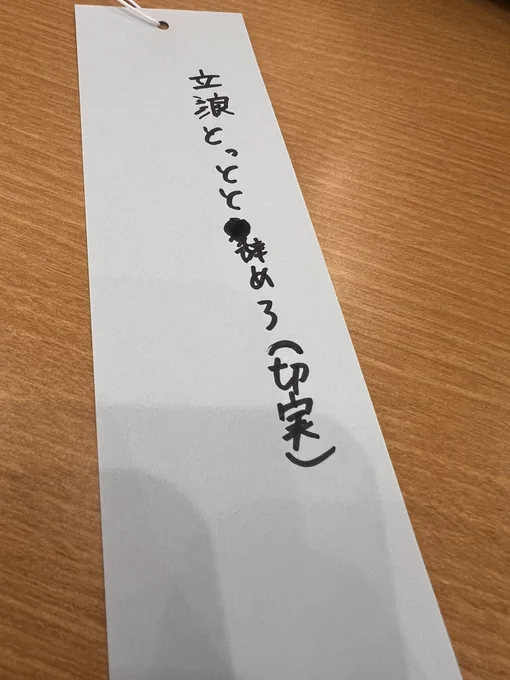 立浪とっとと辞めろ(切実)